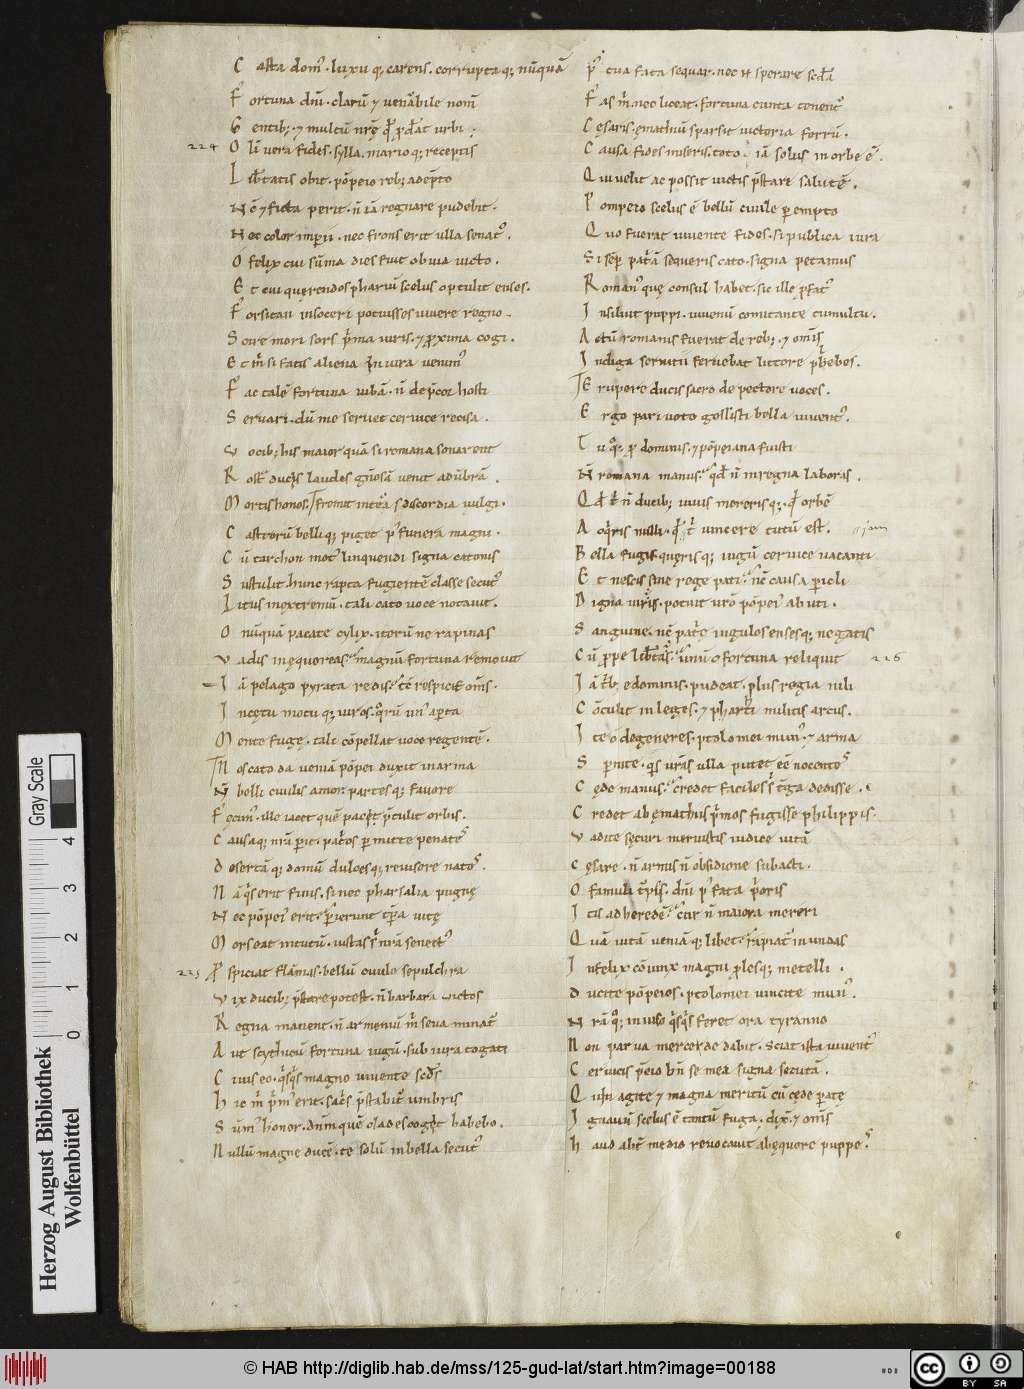 C asta domꝰ. luxu q; carens. corrupta q; nūquā
F ortuna dnī. clarū ⁊ venābile nomē
G entib; ⁊ multū nrę̄ qđ ꝓdat urbi.
224 O lī vera fides. sylla. mario q; receptis
L ibtatis obit. pōpeio reb; adēpto
N c̄ ⁊ ficta perit. n̄ iā regnare pudebit.
N ec color imperii. nec frons erit ulla senatꝰ.
O felix cui sūma dies fuit obvia victo.
E t cui querendos phariū scelus optulit enses.
F orsitan insoceri potuisses vivere regno.
S cire mori sors p̄ma viris. ⁊ ꝓxima cogi.
E t m̄ si fatis aliena in iura venimꝰ
F ac talē fortuna iubā. n̄ dep̄cor hosti
S ervari. dū me servet cervice recisa.
V ocib; his maior quā si romana sonarent
R ostra ducis laudes gn̄osā venit ad ūbrā.
M ortis honos. fremit intēa discordia vulgi.
C astrorū belli q; piget pꝰ funera magni.
C ū tarchon motꝰ linquendi signa catonis
S ustulit. hunc rapta fugientē classe secutꝰ
L itus in extremū. tali cato voce notavit.
O nūquā pacate cylix. iterū ne rapinas
V adis in ęquoreas. magnū fortuna removit
I ā pelago pyrata redis. tc̄ respicit om̄s.
I n cętu motu q; viros. quorū unꝰ apta
M ente fugę. tali cōpellat voce regentē.
N os cato da veniā pōpei duxit in arma
N̄ belli civilis amor. partes q; favore
F ecimꝰ. ille iacet quē paci p̄tulit orbis.
C ausa q; nr̄a perit. patos permitte penates
D esertā q; domū dulces q; revisere natos.
N ā quis erit finis. si nec pharsalia pugnę
N ec pōpeiꝰ erit. perierunt tp̄a vitę
M ors eat in tutū. iustas s; nr̄a senectꝰ
225 P spiciat flāmas. bellū civile sepulchra
V ix ducib; p̄stare potest. n̄ barbara victos
R egna manent. n̄ armeniū m̄ seva minatꝰ
A ut scythicū fortuna iugū. sub iura togati
C ivis eo. quisquis magno vivente scd̄s
H ic m̄ p̄mꝰ erit. sacris p̄stabitꝰ umbris
S ūmꝰ honor. dn̄m quē clades coget habebo.
N ullū magne ducē. te solū in bella secutꝰ
P ꝰ tua fata sequar. nec n̄ sperare scd̄a
F as m̄. nec liceat. fortuna cuncta tenentꝰ
C ęsaris. ęmathiū sparsit victoria ferrū.
C ausa fides miseris. toto iā solus in orbe ē.
Q ui velit ac possit victis p̄stare salutē.
P ompeio scelus ē bellū civile perempto
Q uo fuerat vivente fides. si publica iura
S i sēp pat̄ā sequeris cato. signa petamus
R omanꝰ quę consul habet. sic ille ꝓfatꝰ
I nsiluit puppi. iuvenū comitante tumultu.
A ctū romanis fuerat de reb; ⁊ om̄is
I ndiga servitii fervebat littore plebes.
E rupere ducis sacro de pectore voces.
E rgo pari voto gessisti bella iuventꝰ.
T u quoq; ꝓ dominis. ⁊ pōpeiana fuisti
N̄ romana manus. qđ n̄ in regna laboras.
Q đ t̄ n̄ ducib; vivis moreris q;. qđ orbē
A cquiris nulli. qđ iā vincere tutū est.
B ella fugis queris q; iugū cervice vacanti
E t nescis sine rege pati. nc̄ causa pericli
D igna viris. potuit vrō pōpeiꝰ abuti.
S anguine. nc̄ patę iugulos enses q; negatis
C ū ꝓpe libtas. unū fortuna reliquit 226
I ā tribꝰ e dominis. pudeat. plus regia nili
C ōtulit in leges. ⁊ pharti militis arcus.
I te o degeneres. ptolomei munꝰ. ⁊ arma
S pernite. qs vras ulla putet eē nocentes
C ędo manus. credet faciles s terga dedisse.
C redet ab ęmathiis p̄mos fugisse philippis.
V adite securi meruistis iudice vitā
C ęsare. n̄ armis n̄ obsidione subacti.
O famuli turps. dn̄i pꝰ fata p̄oris
I tis ad heredē. cur n̄ maiora mereri
Q uā vitā veniā q; libet. rapiatꝰ in undas
I nfelix cōiunx magni ꝓles q; metelli.
D ucite pōpeios. ptolomei vincite munꝰ.
N r̄a quoq; inviso quisquis feret ora tyranno
N on parva mercede dabit. sciat ista iuventꝰ
C ervicis p̄cio bn̄ se mea signa secutā.
Q uin agite ⁊ magna meritū cū cęde parate
I gnavū scelus ē tantū fuga. dix̄. ⁊ om̄is
H aud alit̄ medio revocavit ab ęquore puppes
Gray Scale
0 1 2 3 4
Herzog August Bibliothek
Wolfenbüttel
© HAB http://diglib.hab.de/mss/125-gud-lat/start.htm?image=00188
cc BY SA